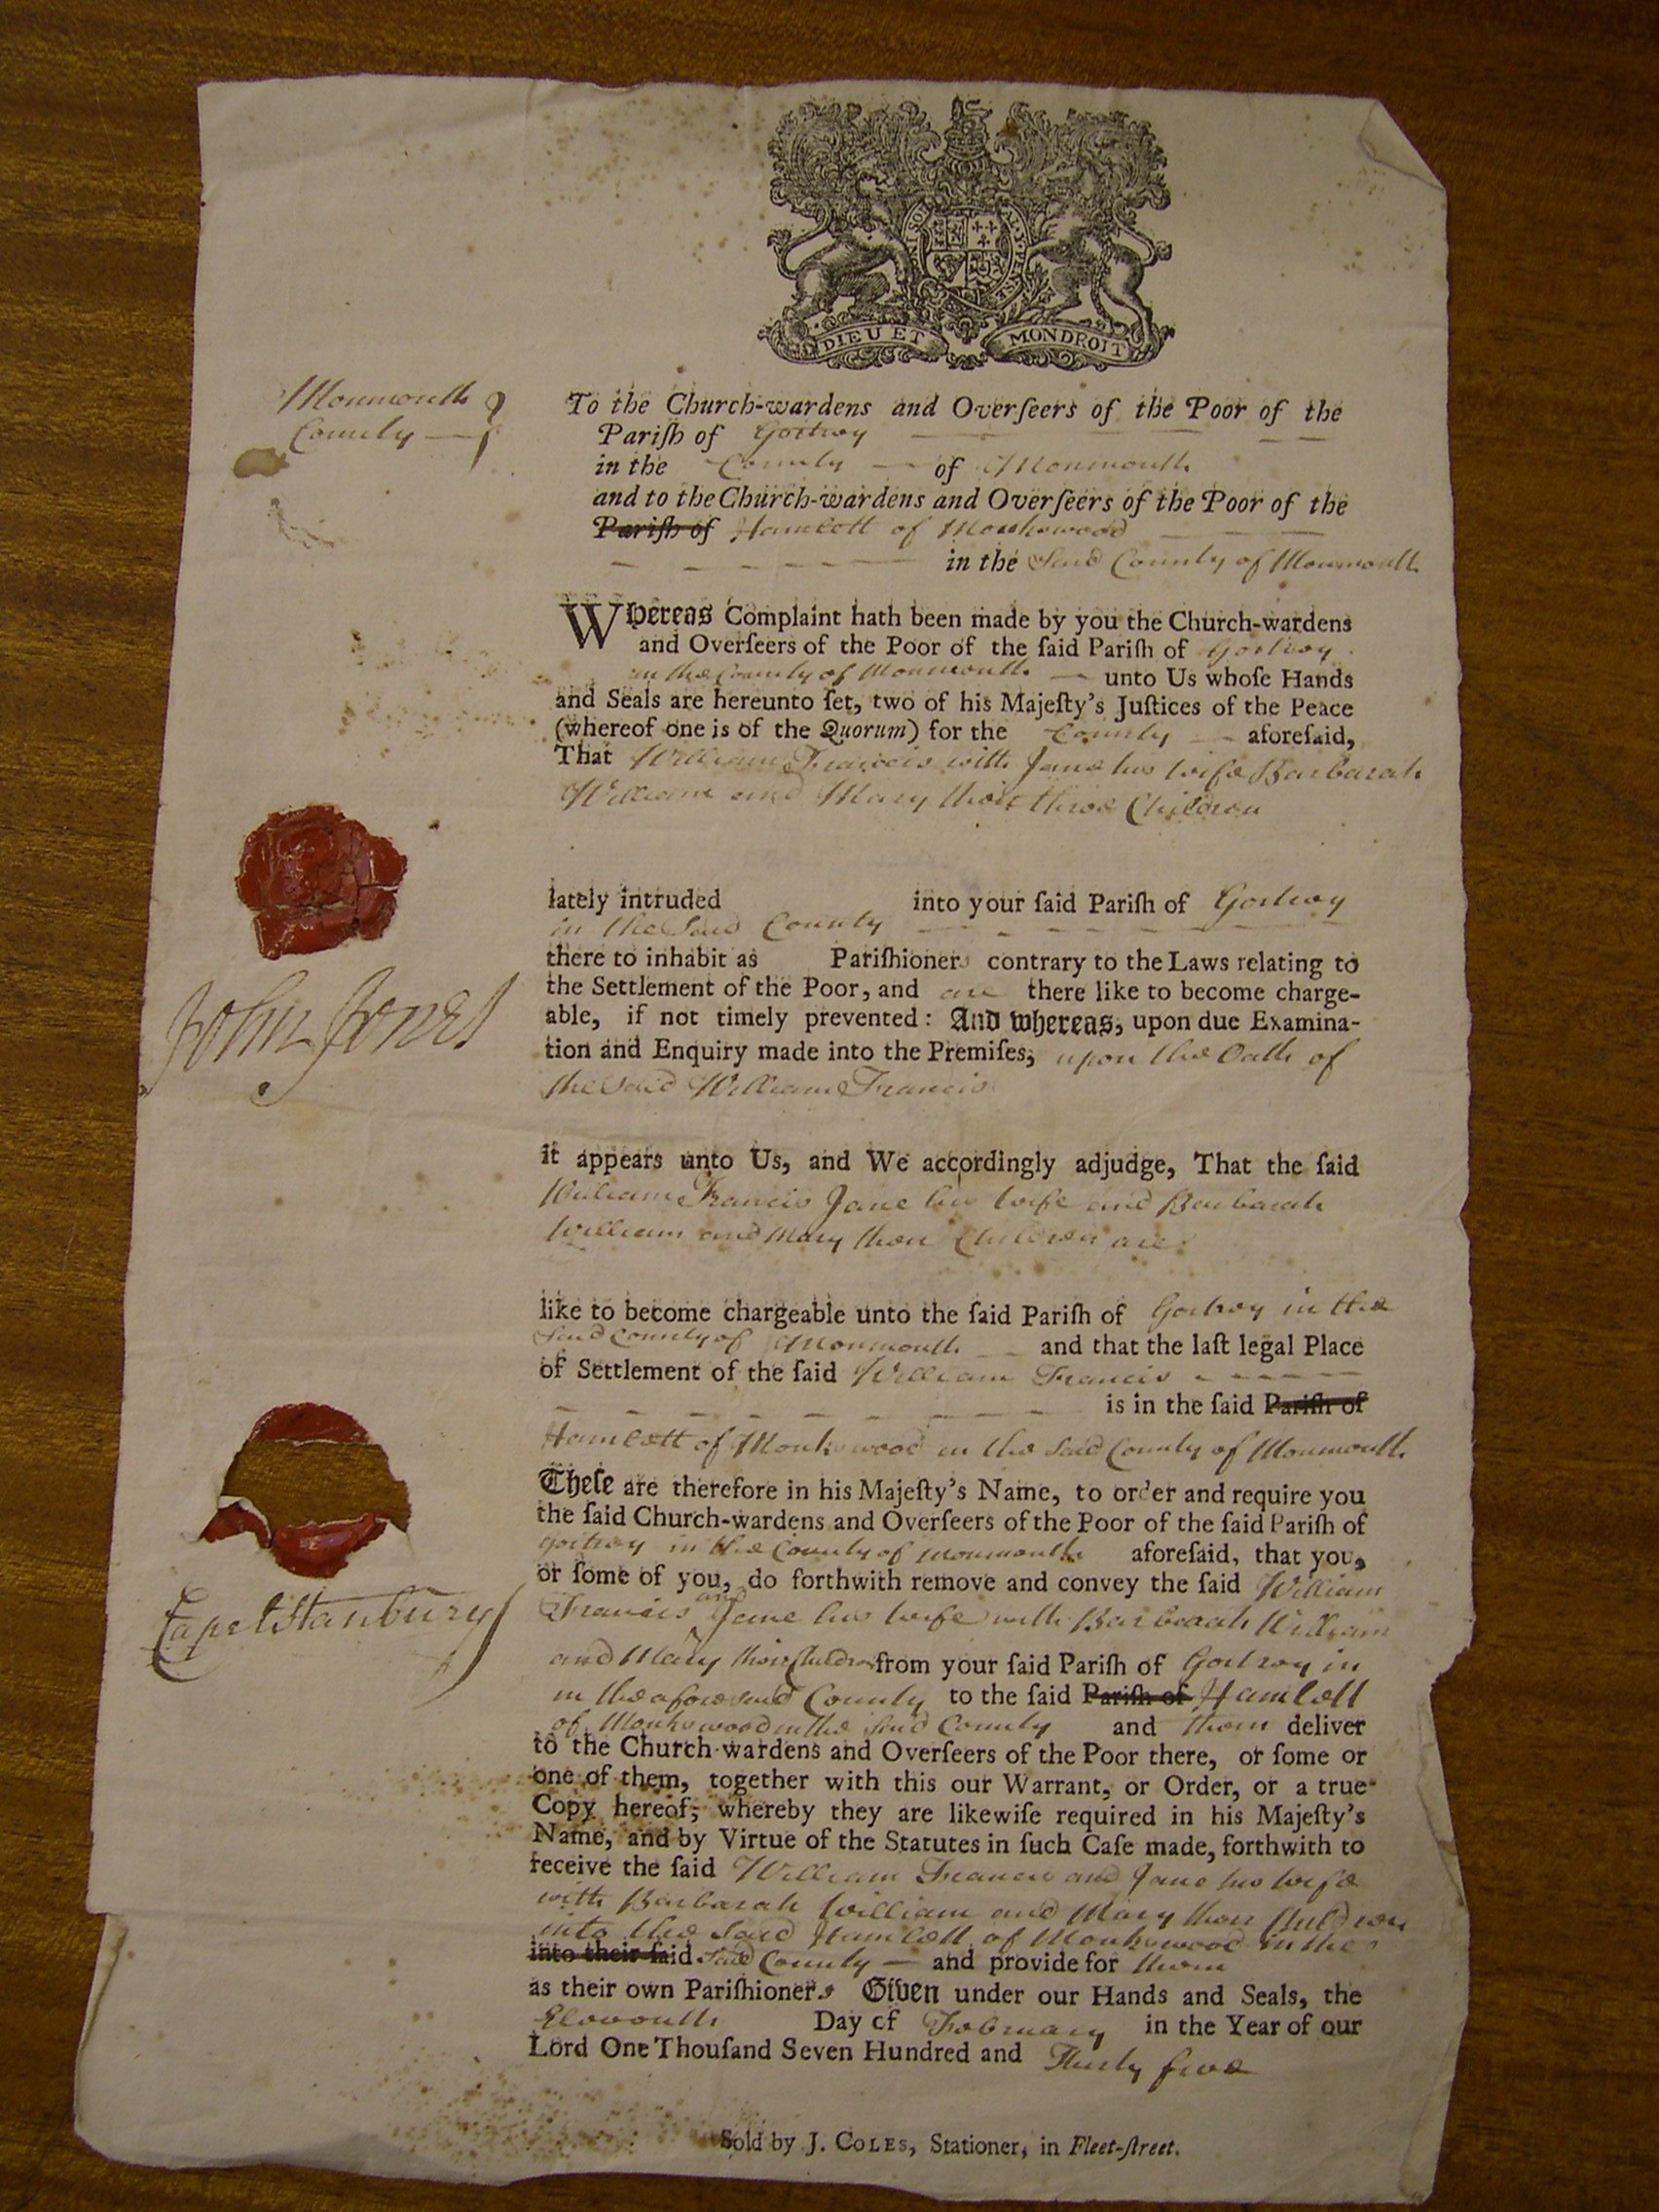 DIEU ET MON DROIT
Monmouth
County
To the Church-wardens and Overſeers of the Poor of the
Pariſh of Goitrey
in the County of Monmouth
and to the Church-wardens and Overſeers of the Poor of the
Pariſh of Hamlett of Monkswood
in the Said County of Monmouth
Whereas Complaint hath been made by you the Church-wardens
and Overſeers of the Poor of the ſaid Pariſh of Goitrey
in the County of Monmouth unto Us whoſe Hands
and Seals are hereunto ſet, two of his Majeſty's Juſtices of the Peace
(whereof one is of the Quorum) for the County aforeſaid,
That William Francis with Jane his wife Barbarah
William and Mary their three Children
lately intruded into your ſaid Pariſh of Goitrey
in the Said County
there to inhabit as Pariſhioners contrary to the Laws relating to
the Settlement of the Poor, and are there like to become charge-
able, if not timely prevented: And whereas, upon due Examina-
tion and Enquiry made into the Premiſes, upon the Oath of
the Said William Francis
John Jones
it appears unto Us, and We accordingly adjudge, That the ſaid
William Francis Jane his wife and Barbarah
William and Mary their Children are
like to become chargeable unto the ſaid Pariſh of Goitrey in the
Said County of Monmouth and that the laſt legal Place
of Settlement of the ſaid William Francis
is in the ſaid Pariſh of
Hamlett of Monkswood in the Said County of Monmouth
Theſe are therefore in his Majeſty's Name, to order and require you
the ſaid Church-wardens and Overſeers of the Poor of the ſaid Pariſh of
Goitrey in the County of Monmouth aforeſaid, that you,
or ſome of you, do forthwith remove and convey the ſaid William
Francis and Jane his wife with Barbarah William
Capel Hanbury
and Mary their Children from your ſaid Pariſh of Goitrey in
in the aforesaid County to the ſaid Pariſh of Hamlett
of Monkswood in the Said County and them deliver
to the Church-wardens and Overſeers of the Poor there, or ſome or
one of them, together with this our Warrant, or Order, or a true
Copy hereof; whereby they are likewiſe required in his Majeſty's
Name, and by Virtue of the Statutes in ſuch Caſe made, forthwith to
receive the ſaid William Francis and Jane his wife
with Barbarah William and Mary their Children
into the Said Hamlett of Monkswood in the
into their ſaid Said County and provide for them
as their own Pariſhioners Given under our Hands and Seals, the
Eleventh Day of February in the Year of our
Lord One Thouſand Seven Hundred and Thirty five
Sold by J. COLES, Stationer, in Fleet-ſtreet.